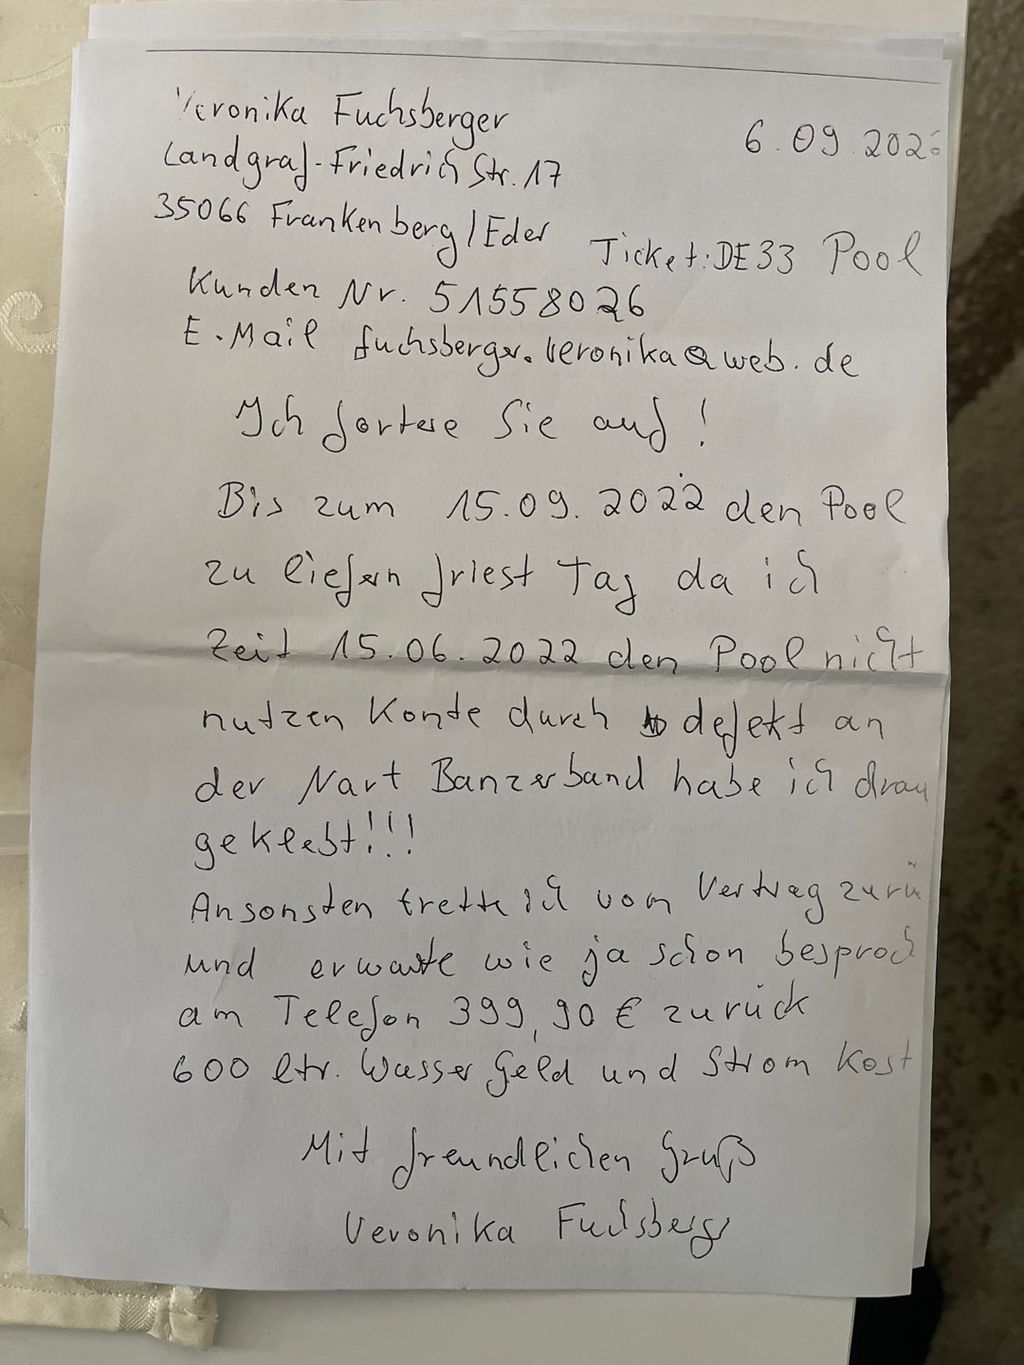 Veronika Fuchsberger
6.09.202
Landgraf-Friedrich Str. 17
35066 Frankenberg/Eder
Ticket: DE33 Pool
Kunden Nr. 51558026
E.Mail fuchsberger.veronika@web.de
Ich fortere Sie auf!
Bis zum 15.09.2022 den Pool
zu liefern friest Tag da ich
Zeit 15.06.2022 den Pool nicht
nutzen Konte durch defekt an
der Nart Banzerband habe ich drau
geklebt!!!
Ansonsten trette ich vom Vertrag zurü
und erwarte wie ja schon besproch
am Telefon 399,90 € zurück
600 ltr. Wasser Geld und Strom Kost
Mit freundlichen Gruß
Veronika Fuchsberger